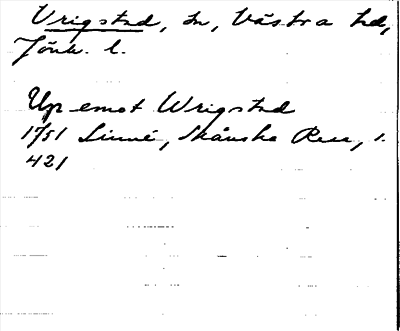 Vrigstad, sn, Västra hd,
Jönk. l.
Up emot Wrigstad
1751 Linné, Skånska Resa, s.
421